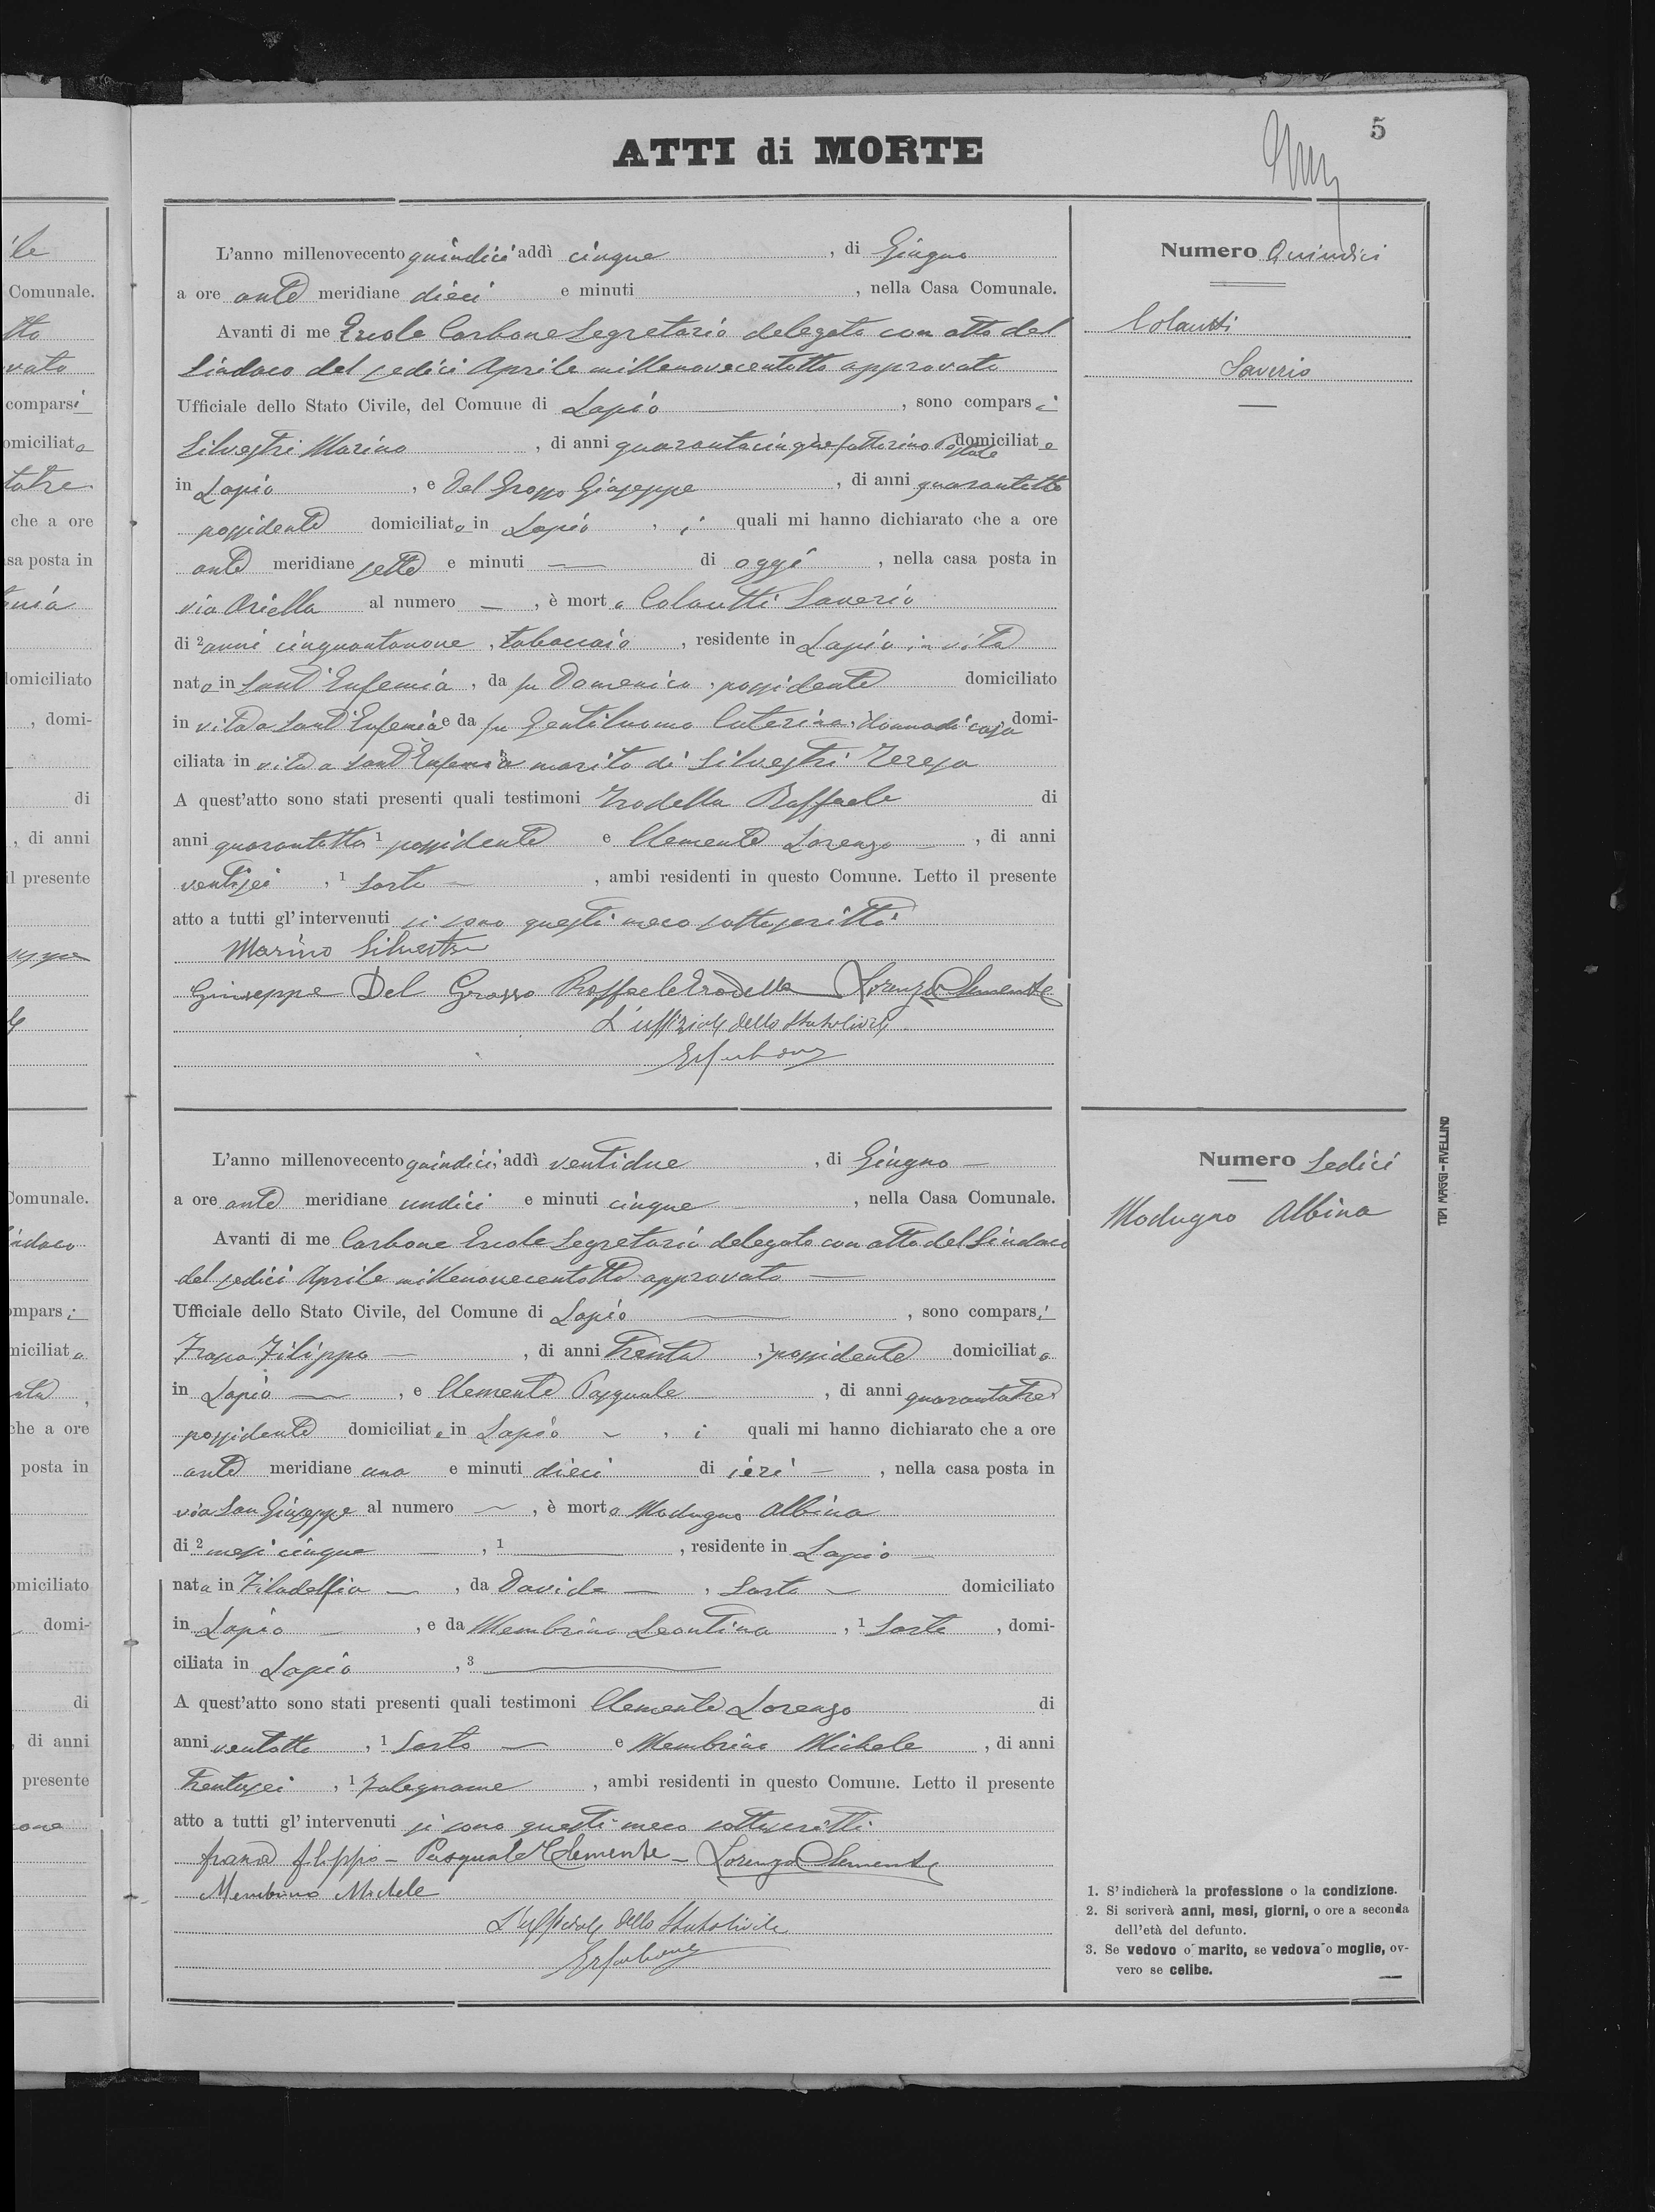 5
ATTI di MORTE
L'anno millenovecento quindici addì cinque, di Giugno
a ore ante meridiane dieci e minuti, nella Casa Comunale.
Avanti di me Ercole Carbone Segretario delegato con atto del
Sindaco del sedici Aprile millenovecentotto approvato
Ufficiale dello Stato Civile, del Comune di Lapio, sono comparsi
Silvestri Marino, di anni quarantacinque fattorino Postale domiciliato
in Lapio, e Del Grosso Giuseppe, di anni quarantotto
possidente domiciliato in Lapio, i quali mi hanno dichiarato che a ore
ante meridiane sette e minuti — di oggi, nella casa posta in
via Ariella al numero —, è morto Colantti Saverio
di 2 anni cinquantanove, tabaccaio, residente in Lapio in vita
nato in Sant'Eufemia, da fu Domenico, possidente domiciliato
in vita a Sant'Eufemia e da fu Gentiluomo Caterina, donna di casa domi-
ciliata in vita a Sant'Eufemia marito di Silvestri Teresa
A quest'atto sono stati presenti quali testimoni Trodella Raffaele di
anni quarantotto 1 possidente e Clemente Lorenzo, di anni
ventisei, 1 Sarto —, ambi residenti in questo Comune. Letto il presente
atto a tutti gl'intervenuti si sono questi meco sottoscritti
Marino Silvestri
Giuseppe Del Grosso Raffaele Trodella Lorenzo Clemente
L'uffiziale dello Stato Civile
Numero Quindici
Colantti
Saverio
L'anno millenovecento quindici addì ventidue, di Giugno —
a ore ante meridiane undici e minuti cinque, nella Casa Comunale.
Avanti di me Carbone Ercole Segretario delegato con atto del Sindaco
del sedici Aprile millenovecentotto approvato —
Ufficiale dello Stato Civile, del Comune di Lapio —, sono comparsi
Filippo —, di anni trenta, 1 possidente domiciliato
in Lapio —, e Clemente Pasquale, di anni quarantatre
possidente domiciliato in Lapio —, i quali mi hanno dichiarato che a ore
ante meridiane una e minuti dieci di ieri —, nella casa posta in
via San Giuseppe al numero —, è morta Modugno Albina
di 2 mesi cinque —, 1 —, residente in Lapio —
nata in Filadelfia —, da Davide —, Sarto — domiciliato
in Lapio —, e da Membrino Leontina, 1 Sarta, domi-
ciliata in Lapio, 3 —
A quest'atto sono stati presenti quali testimoni Clemente Lorenzo di
anni ventotto, 1 Sarto — e Membrino Michele, di anni
trentasei, 1 Falegname, ambi residenti in questo Comune. Letto il presente
atto a tutti gl'intervenuti si sono questi meco sottoscritti
Filippo — Pasquale Clemente — Lorenzo Clemente
Membrino Michele
L'ufficiale dello Stato Civile
Numero Sedici
Modugno Albina
1. S'indicherà la professione o la condizione.
2. Si scriverà anni, mesi, giorni, o ore a seconda
dell'età del defunto.
3. Se vedovo o marito, se vedova o moglie, ov-
vero se celibe.
TIPI MAGGI-AVELLINO